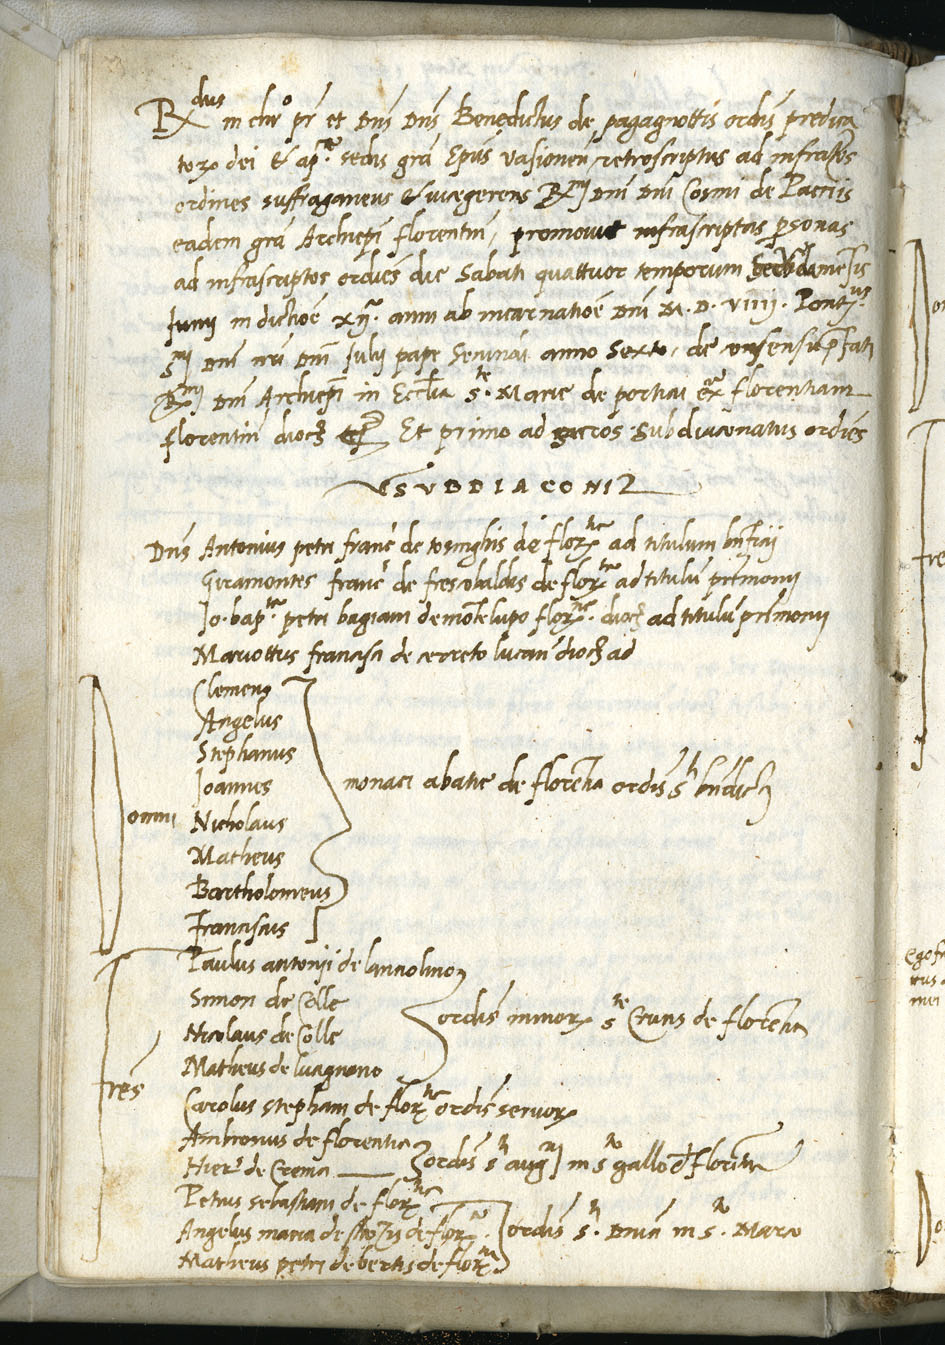 R.dus in chro pr et Dns Dns Benedictus de pagagnottis ordis predica
tor dei et ap.ce sedis gra Epus vasionen retroscriptus ad infrasctos
ordines suffraganeus et vicegerens R.mi Dni Dni Cosmi de Pactiis
eadem gra Archiepi florentin, promovit infrascriptas psonas
ad infrascriptos ordies die Sabati quattuor temporum
Junii indictioe xij. anni ab incarnatioe Dni M. D. VIIII. Pont.us
S.mi Dni nri Dni Julij pape Secundi anno Sexto, de consensu pfati
R.mi Dni Archiepi in Ecclia S.te Marie de porticu ex.a florentiam
florentin dioc Et primo ad sacros Subdiaconatus ordies
SVBDIACONI
Dns Antonius petri franc de tosinghis de flor.tia ad titulum bnficij
Giramontes franc de frescobaldis de flor.tia ad titulu primonij
Jo. bap.ta petri bagiani de mote lupo flor.ne dioc ad titulu primonij
Mariottus francisci de cerreto lucan dioc ad
Domni
Clemens
Angelus
Stephanus
Joannes
Nicholaus
Matheus
Bartholomeus
Franciscus
monaci abatie de florentia ordis s.ti bndicti
fres
Paulus antonij de lanciolino
Simon de Colle
Nicolaus de Colle
Matheus de
ordis minor s.te Crucis de florentia
Carolus stephani de flor.tia ordis servor
Ambrosius de florentia
Hier.s de Crema
ordis s.ti aug.ni in s.to gallo de florentia
Petrus sebastiani de flor.tia
Angelus maria de strozis de flor.a
Matheus petri de bertis de flor.tia
ordis s.ti Dnici in s.to Marco